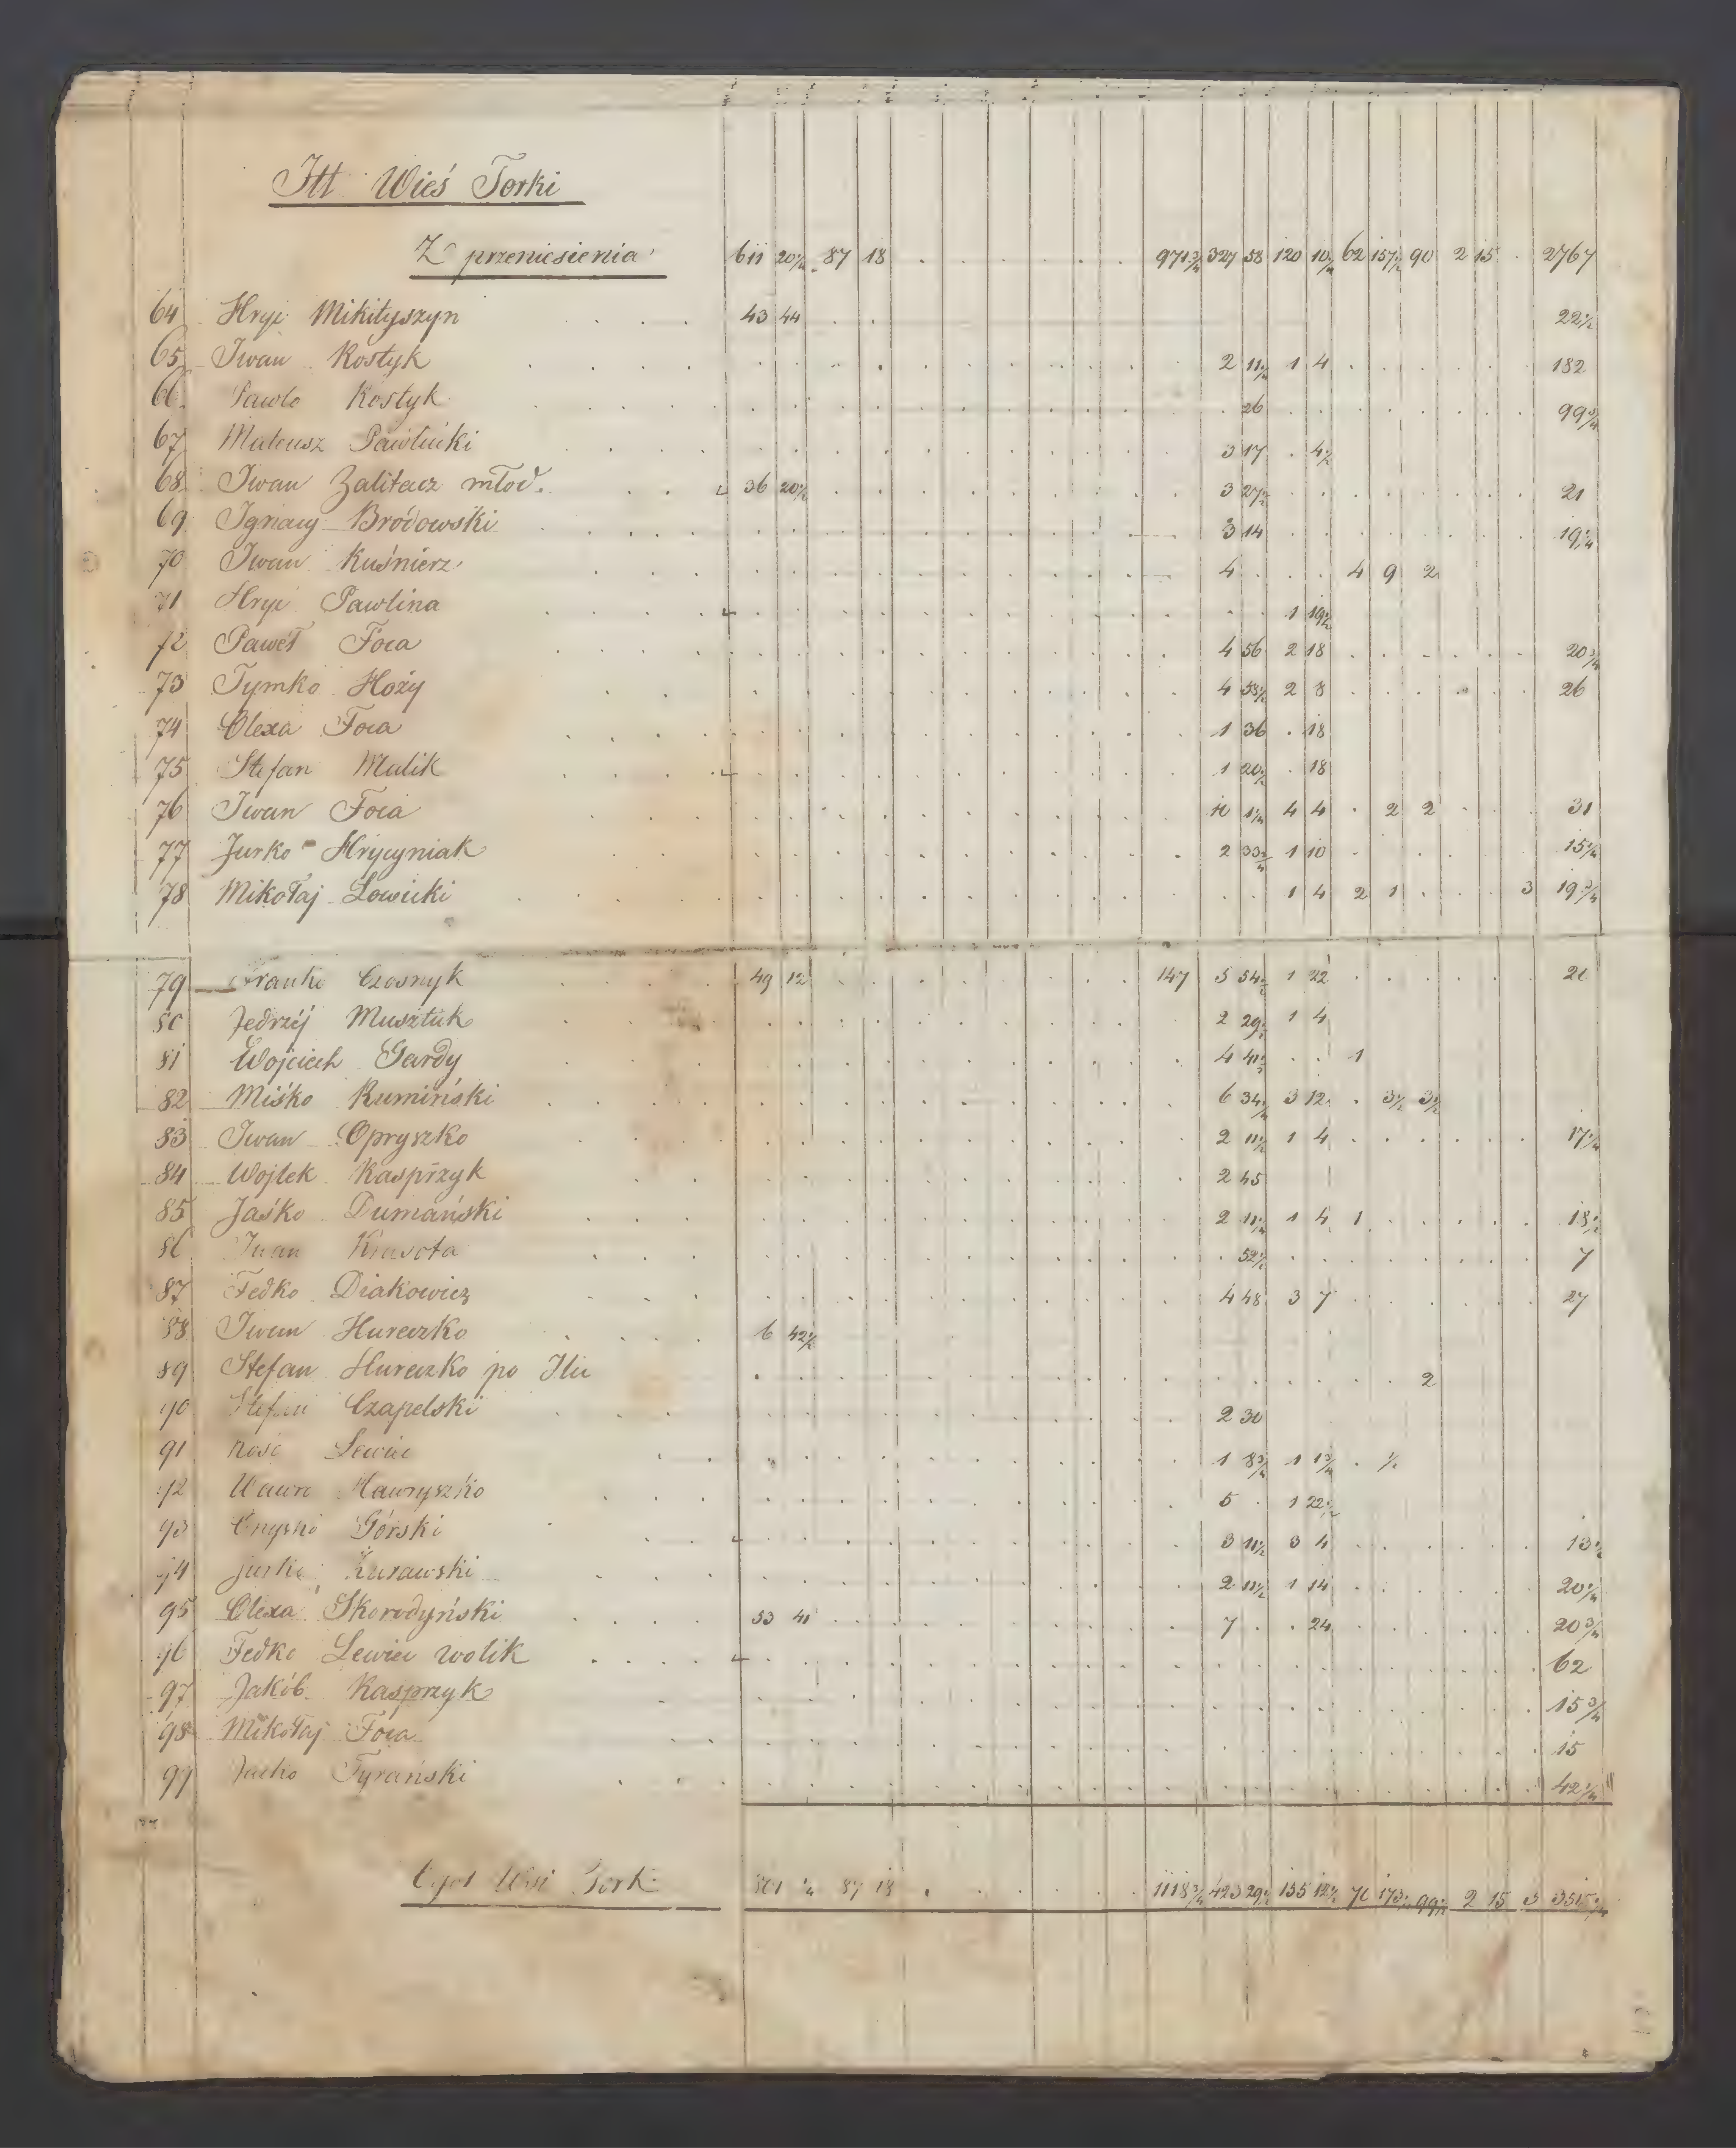 Itt Wieś Torki
Z przeniesienia 611 20¼ 87 18 971¾ 327 58 120 10¼ 62 157½ 90 2 15 2767
64 Hryć Mikityszyn 43 44 22½
65 Iwan Kostyk 2 11½ 1 4 182
66 Pawlo Kostyk 26 99¾
67 Mateusz Pawlucki 3 17 4½
68 Iwan Zalitacz młod. 36 20½ 3 27½ 21
69 Ignacy Brodowski 3 14 19¼
70 Iwan Kuśnierz 4 4 9 2
71 Hryć Pawlina 1 19½
72 Paweł Foca 4 56 2 18 20¾
73 Tymko Hoży 4 58½ 2 8 26
74 Olexa Foca 1 36 18
75 Stefan Malik 1 20½ 18
76 Iwan Foca 10 1¼ 4 4 2 2 31
77 Jurko Hrycyniak 2 33¾ 1 10 15¼
78 Mikołaj Łowicki 1 4 2 1 3 19¾
79 Franko Czosnyk 49 12 147 5 54½ 1 22
80 Jedrzéj Musztuk 2 29½ 1 4
81 Wojciech Gardy 4 41½ 1
82 Miśko Rumiński 6 34¼ 3 12 3½ 3½
83 Iwan Opryszko 2 11½ 1 4 17¼
84 Wojtek Kasprzyk 2 45
85 Jaśko Dumański 2 11¼ 1 4 1 18½
86 Iwan Krasota 52½ 7
87 Fedko Diakowicz 4 48 3 7 27
88 Iwan Hureczko 6 42½
89 Stefan Hureczko po Ilu 2
90 Stefan Czapelski 2 30
91 Lewicc 1 8¾ 1 1¾ ½
92 Hawryszko 5 1 22½
93 Górski 3 11½ 3 4 13½
94 Jurko Żurawski 2 11½ 1 14 20¼
95 Olexa Skorodyński 53 41 7 24 20¾
96 Fedko Lewicc wolik 62
97 Jakób Kasprzyk 15¾
98 Mikołaj Foca 15
99 Tyrański 42¼
Wsi Tork 801 ¼ 87 18 1118¾ 423 29½ 135 12½ 70 173½ 99½ 2 15 3